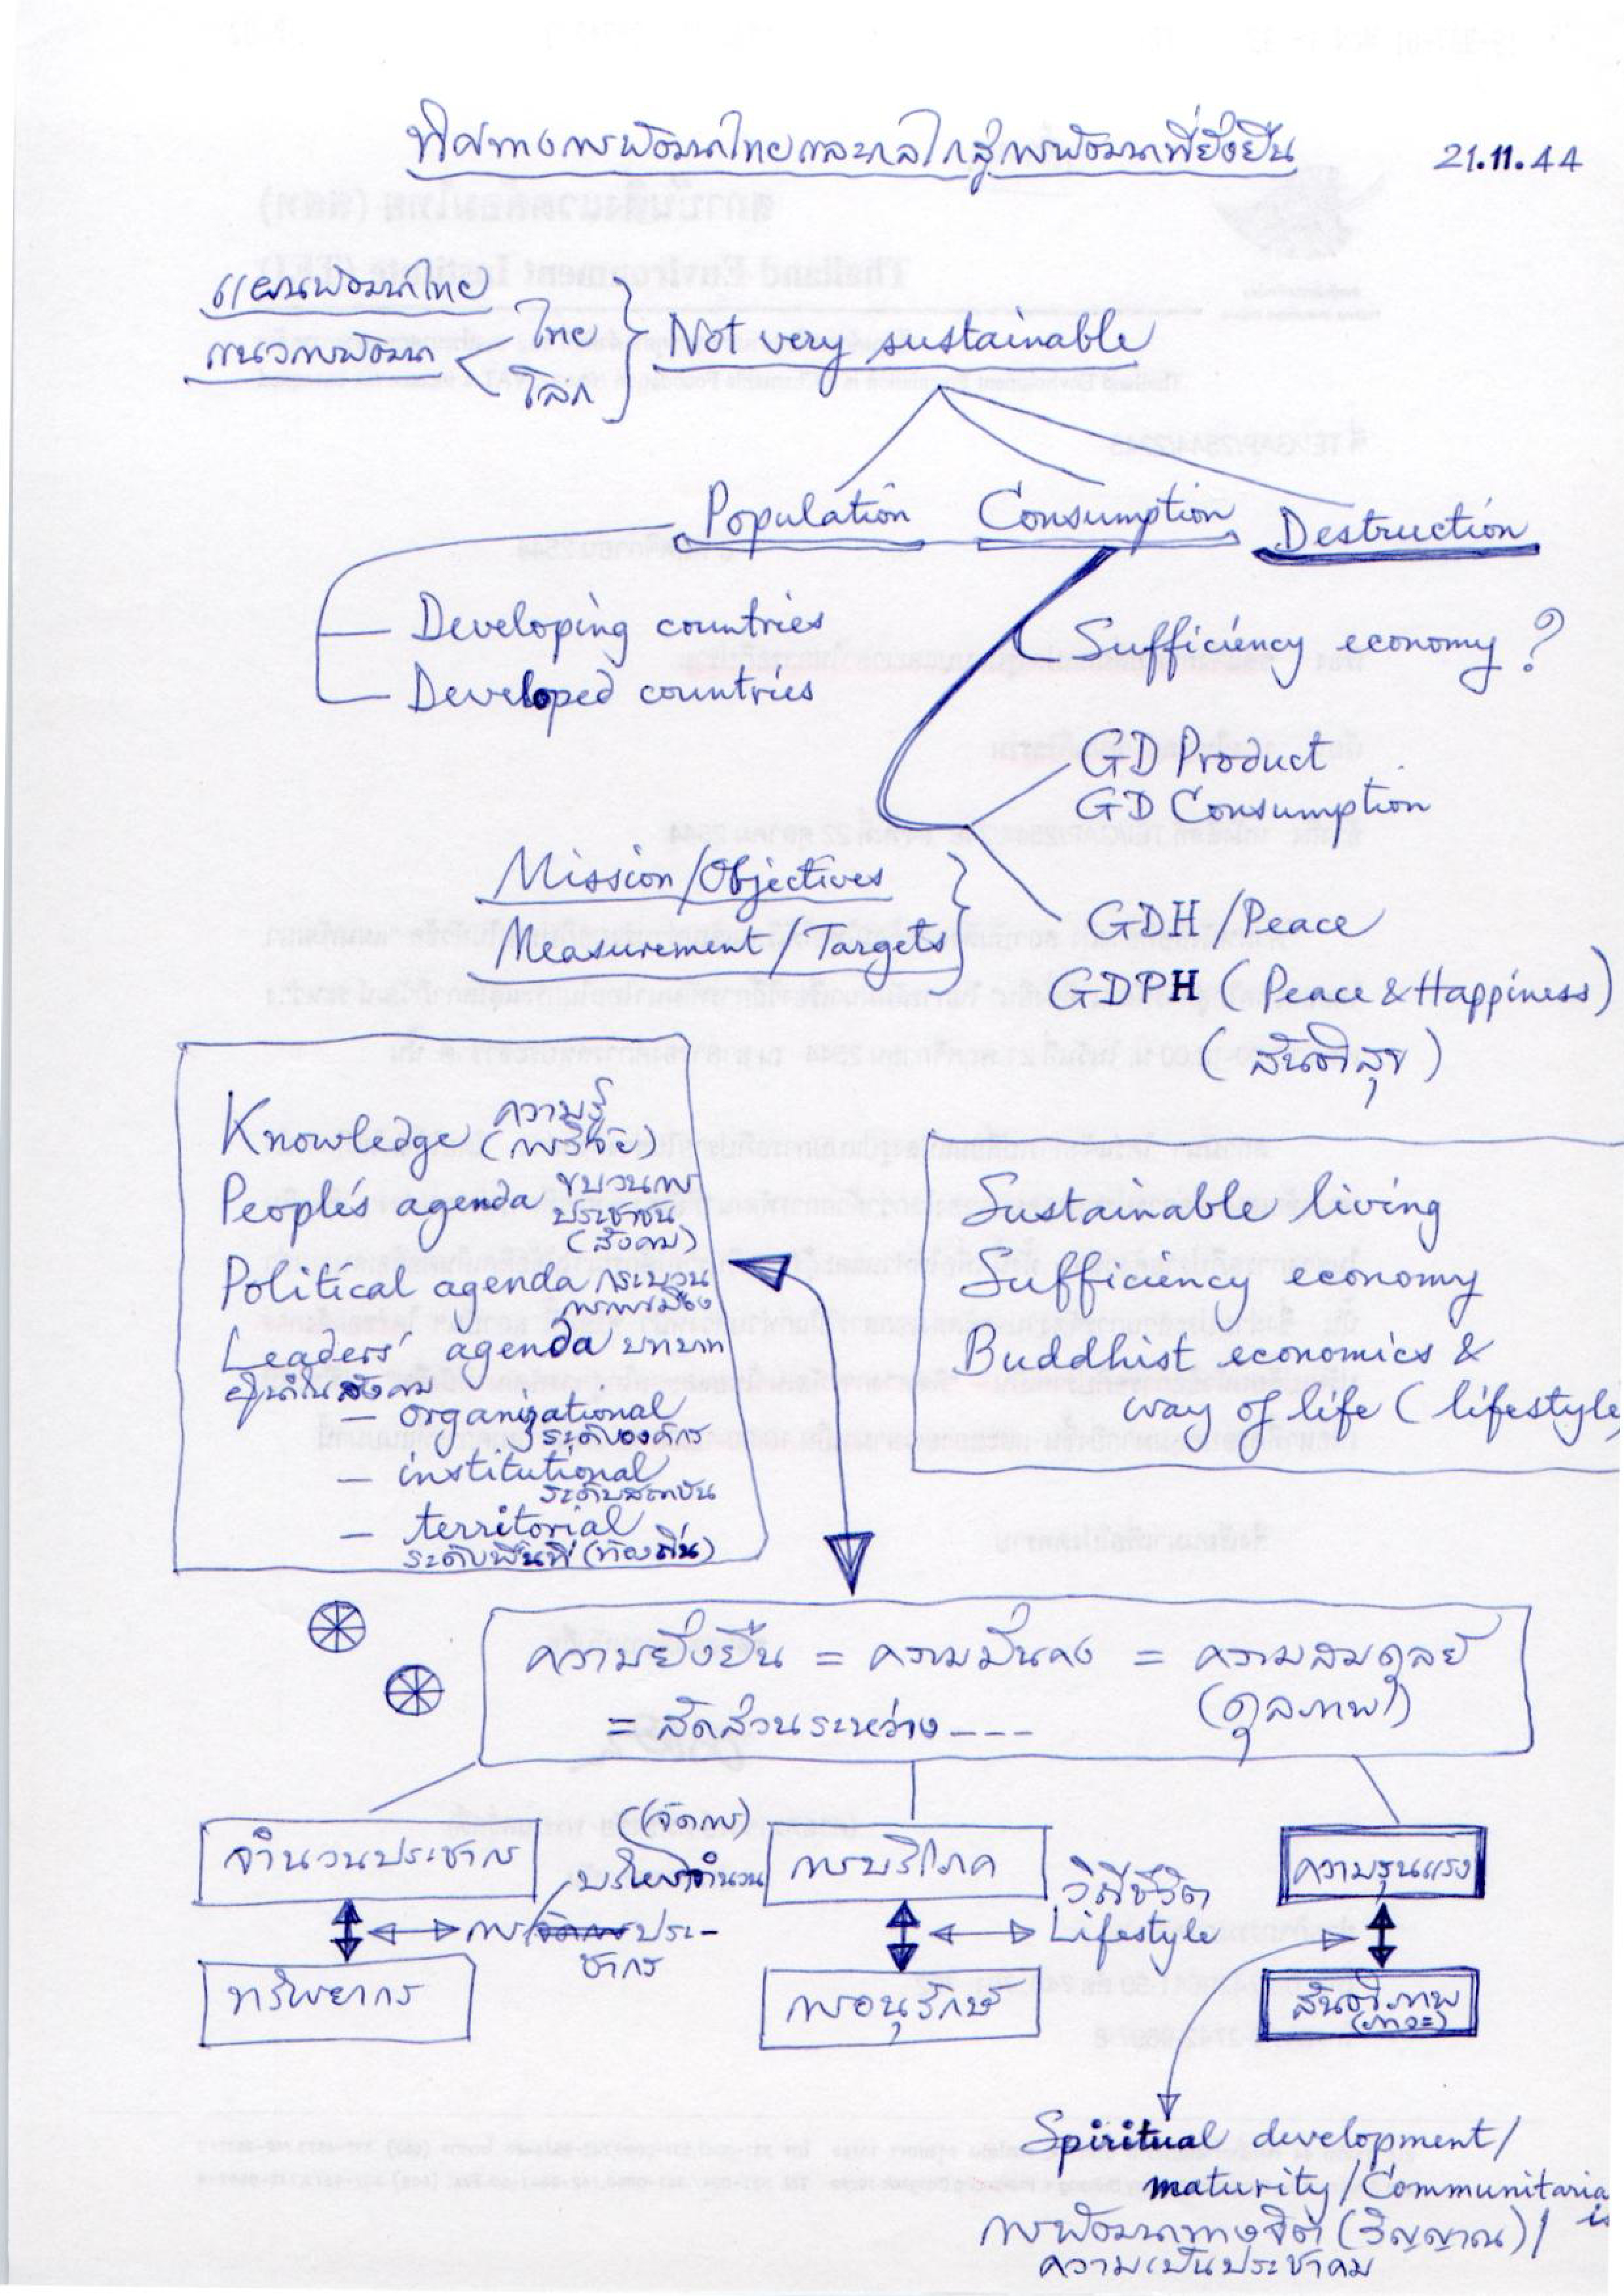 ทิศทางการพัฒนาไทยและกลไกสู่การพัฒนาที่ยั่งยืน
21.11.44
แผนพัฒนาไทย
แนวการพัฒนา
ไทย
โลก
Not very sustainable
Population Consumption Destruction
Developing countries
Developed countries
Sufficiency economy ?
GD Product
GD Consumption
Mission/Objectives
Measurement/Targets
GDH/Peace
GDPH (Peace & Happiness)
(สันติสุข)
Knowledge ความรู้
(การวิจัย)
People's agenda ขบวนการ
ประชาชน
(สังคม)
Political agenda กระบวน
การการเมือง
Leaders' agenda บทบาท
ผู้นำในสังคม
- organizational
ระดับองค์กร
- institutional
ระดับสถาบัน
- territorial
ระดับพื้นที่ (ท้องถิ่น)
Sustainable living
Sufficiency economy
Buddhist economics &
way of life (lifestyle
ความยั่งยืน = ความมั่นคง = ความสมดุลย์
(ดุลภาพ)
= สัดส่วนระหว่าง ---
จำนวนประชากร
(จัดการ)
การประ-
ชากร
ทรัพยากร
การบริโภค
วิถีชีวิต
Lifestyle
การอนุรักษ์
ความรุนแรง
สันติภาพ
(ภาวะ)
Spiritual development/
maturity/Communitaria
is
การพัฒนาทางจิต (วิญญาณ)/
ความเป็นประชาคม